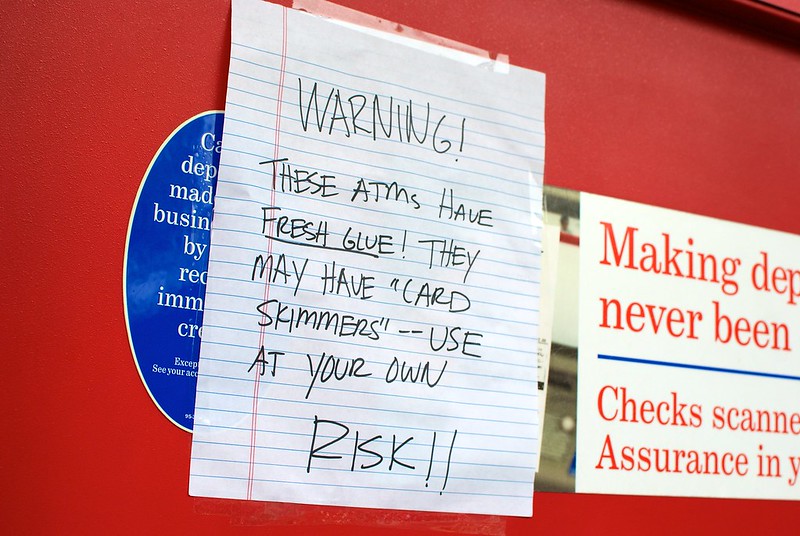 WARNING!
THESE ATMs HAVE
FRESH GLUE! THEY
MAY HAVE "CARD
SKIMMERS" -- USE
AT YOUR OWN
RISK!!
dep
mad
busin
by
rec
imm
cre
Excep
See your acc
Making dep
never been
Checks scanne
Assurance in y